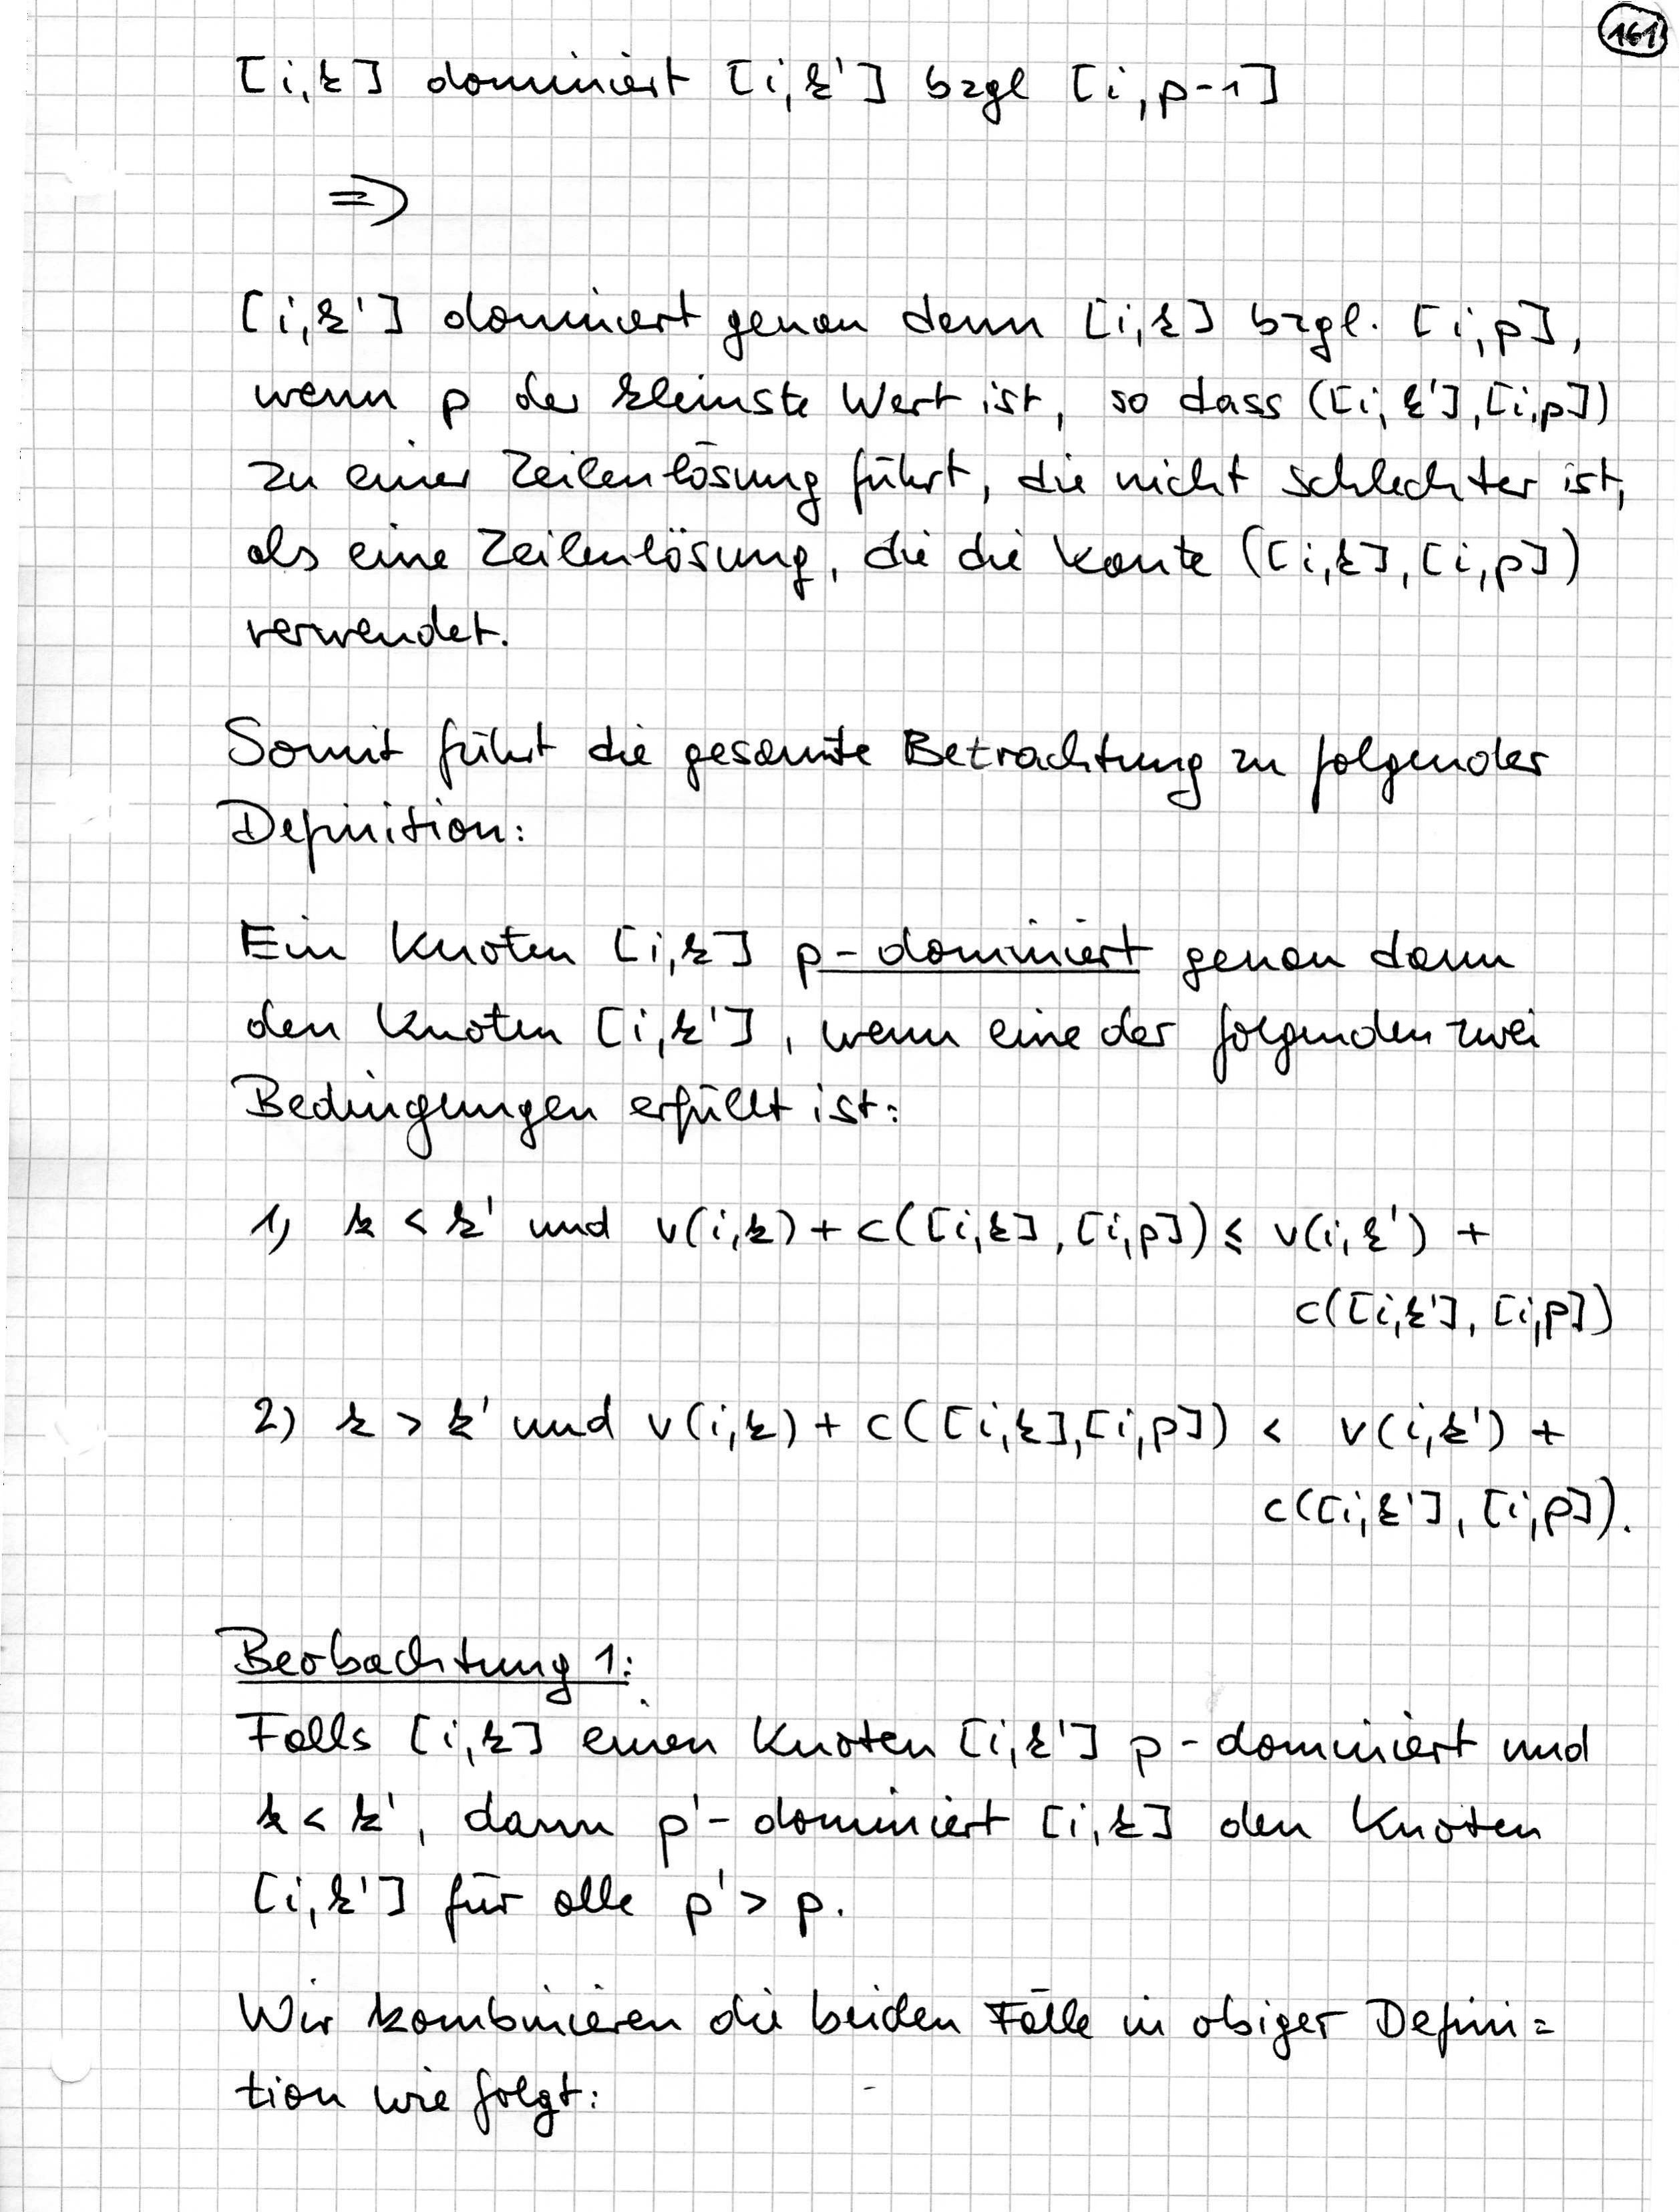 161
[i,k] dominiert [i,k'] bzgl [i,p-1]
=>
[i,k'] dominiert genau dann [i,k] bzgl. [i,p],
wenn p der kleinste Wert ist, so dass ([i,k'],[i,p])
zu einer Zeilenlösung führt, die nicht schlechter ist,
als eine Zeilenlösung, die die Kante ([i,k],[i,p])
verwendet.
Somit führt die gesamte Betrachtung zu folgender
Definition:
Ein Knoten [i,k] p-dominiert genau dann
den Knoten [i,k'], wenn eine der folgenden zwei
Bedingungen erfüllt ist:
1) k < k' und v(i,k) + c([i,k],[i,p]) ≤ v(i,k') +
c([i,k'],[i,p])
2) k > k' und v(i,k) + c([i,k],[i,p]) < v(i,k') +
c([i,k'],[i,p]).
Beobachtung 1:
Falls [i,k] einen Knoten [i,k'] p-dominiert und
k < k', dann p'-dominiert [i,k] den Knoten
[i,k'] für alle p' > p.
Wir kombinieren die beiden Fälle in obiger Defini=
tion wie folgt: